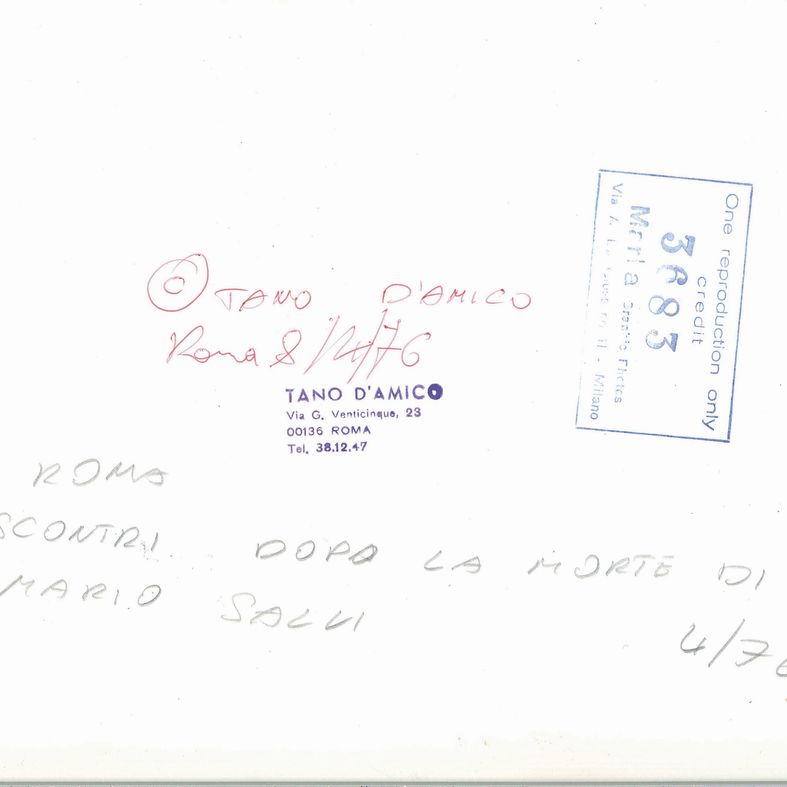 © TANO D'AMICO
Roma 8/4/76
TANO D'AMICO
Via G. Venticinque, 23
00136 ROMA
Tel. 38.12.47
One reproduction only
credit
3683
Marka Graphic Photos
Via - Milano
ROMA
SCONTRI DOPO LA MORTE DI
MARIO SALVI
4/76